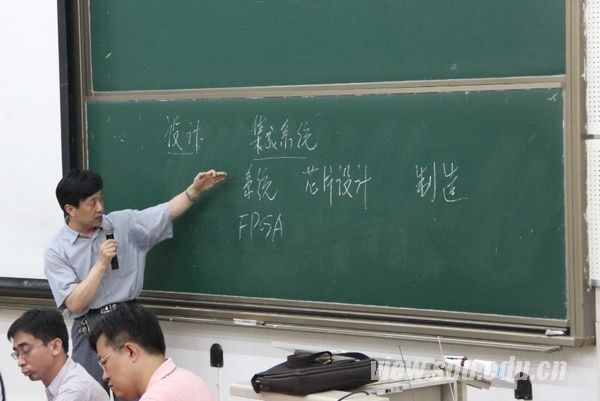 设计 集成系统
系统 芯片设计 制造
FPGA
view.sdu.edu.cn